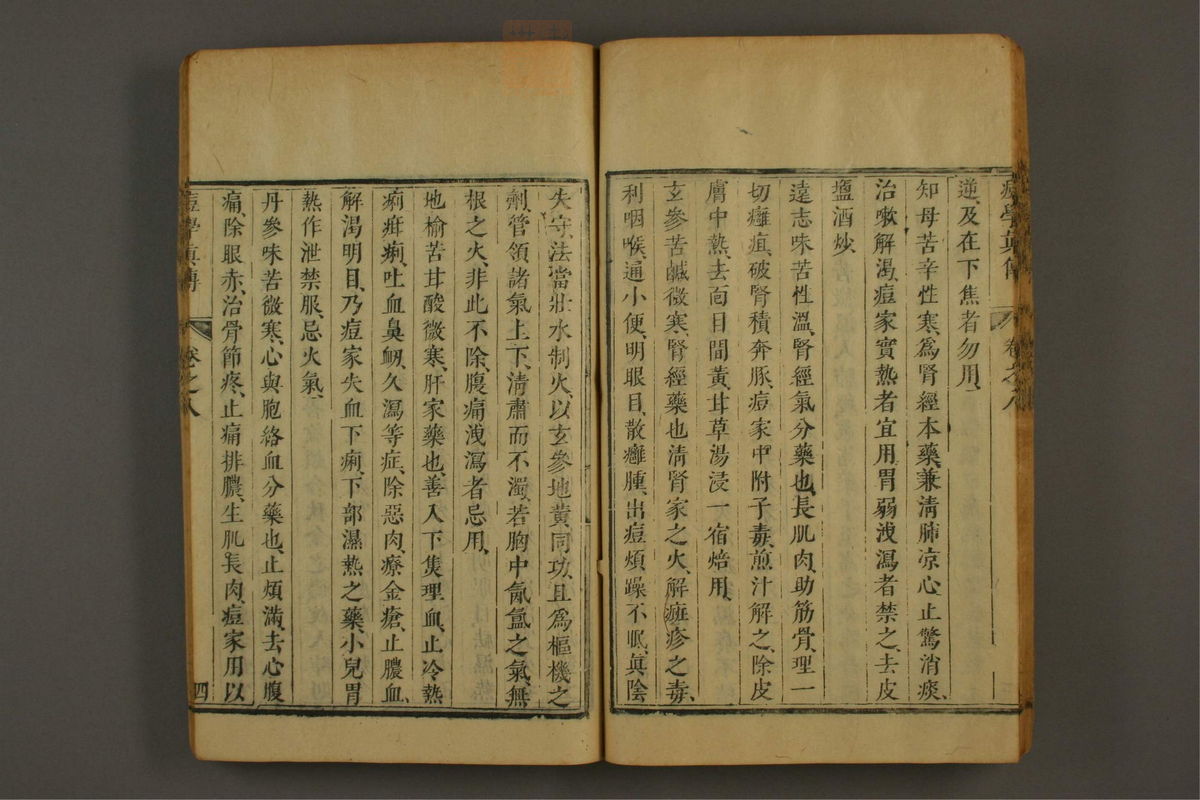 痘學真傳 卷之八
逆、及在下焦者勿用、
知母苦辛性寒、爲腎經本藥、兼清肺凉心、止驚消痰、
治嗽解渴、痘家實熱者宜用、胃弱洩瀉者禁之、去皮
鹽酒炒、
遠志味苦性溫、腎經氣分藥也、長肌肉、助筋骨、理一
切癰疽、破腎積奔豚、痘家中附子毒、煎汁解之、除皮
膚中熱、去面目間黃、甘草湯浸一宿焙用、
玄參苦鹹微寒、腎經藥也、淸腎家之火、解斑疹之毒、
利咽喉、通小便、明眼目、散癰腫、出痘煩躁不眠、眞陰
失守、法當壯水制火、以玄參地黃同功、且爲樞機之
劑、管領諸氣上下、清肅而不濁、若胸中氤氳之氣、無
根之火、非此不除、腹痛洩瀉者忌用、
地榆苦甘酸微寒、肝家藥也、善入下焦理血、止冷熱
痢疳痢、吐血鼻衄、久瀉等症、除惡肉、療金瘡、止膿血、
解渴明目、乃痘家失血下痢、下部濕熱之藥、小兒胃
熱作泄禁服、忌火氣、
丹參味苦微寒、心與胞絡血分藥也、止煩滿、去心腹
痛、除眼赤、治骨節疼、止痛排膿、生肌長肉、痘家用以
痘學眞傳 卷之八 四